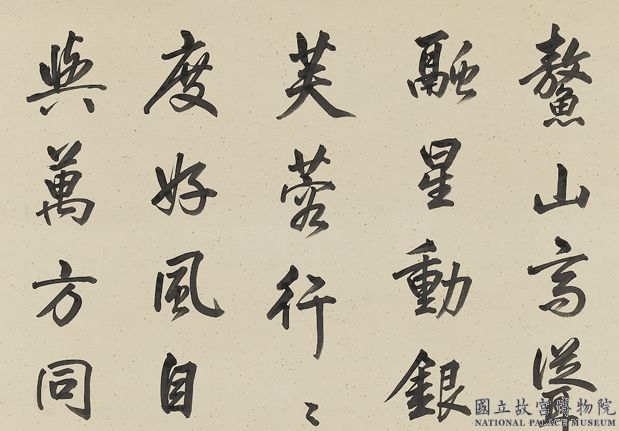 鰲山高聳
融星動銀
芙蓉行〻
度好風自
與萬方同
國立故宮博物院
NATIONAL PALACE MUSEUM